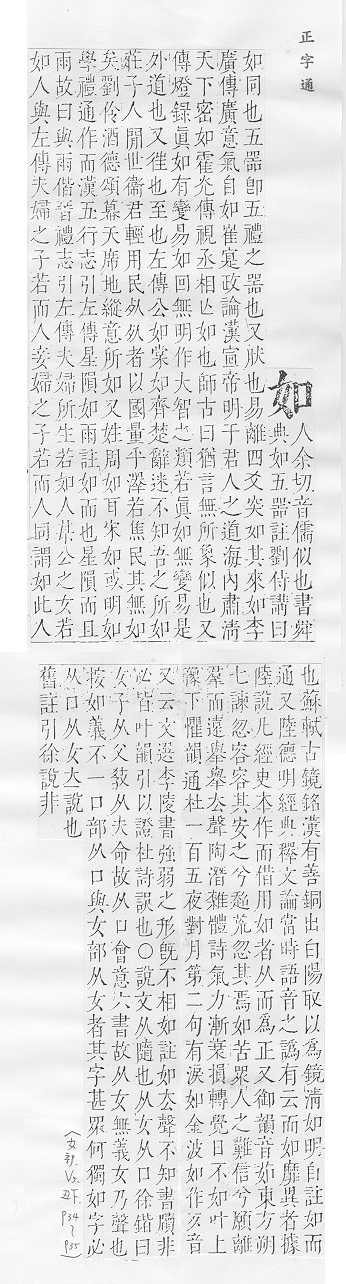 正字通
如
人余切音儒似也書舜
典如五器註劉侍講曰
如同也五器卽五禮之器也又狀也易離四爻突如其來如李
廣傳廣意氣自如崔寔政論漢宣帝明于君人之道海內肅淸
天下密如霍光傳視丞相亾如也師古曰猶言無所象似也又
傳燈錄眞如有變易如回無明作大智之類若眞如無變易是
外道也又徃也至也左傳公如棠如齊楚辭迷不知吾之所如
莊子人閒世衞君輕用民死死者以國量乎澤若焦民其無如
矣劉伶酒德頌幕天席地縱意所如又姓周如耳宋如或明如
學禮通作而漢五行志引左傳星隕如雨註如而也星隕而且
雨故曰與雨偕音禮志引左傳夫婦所生若如人某公之女若
如人與左傳夫婦之子若而人妾婦之子若而人同謂如此人
也蘇軾古鏡銘漢有善銅出白陽取以爲鏡淸如明自註如而
通又陸德明經典釋文論當時語音之譌有云而如靡異者據
陸說凡經史本作而借用如者从而爲正又御韻音茹東方朔
七諫忽容容其安之兮超荒忽其焉如苦衆人之難信兮願離
羣而遠舉舉去聲陶潛雜體詩氣力漸衰損轉覺日不如叶上
豫下懼韻通杜一百五夜對月第二句有淚如金波如作去音
又云文選李陵書強弱之形旣不相如註如去聲不知書牘非
必皆叶韻引以證杜詩誤也〇說文从隨也从女从口徐鍇曰
女子从父敎从夫命故从口會意六書故从女無義女乃聲也
按如義不一口部从口與女部从女者其字甚衆何獨如字必
从口从女立說也
舊註引徐說非
(女部. Vs. 丑下. P34~P35)